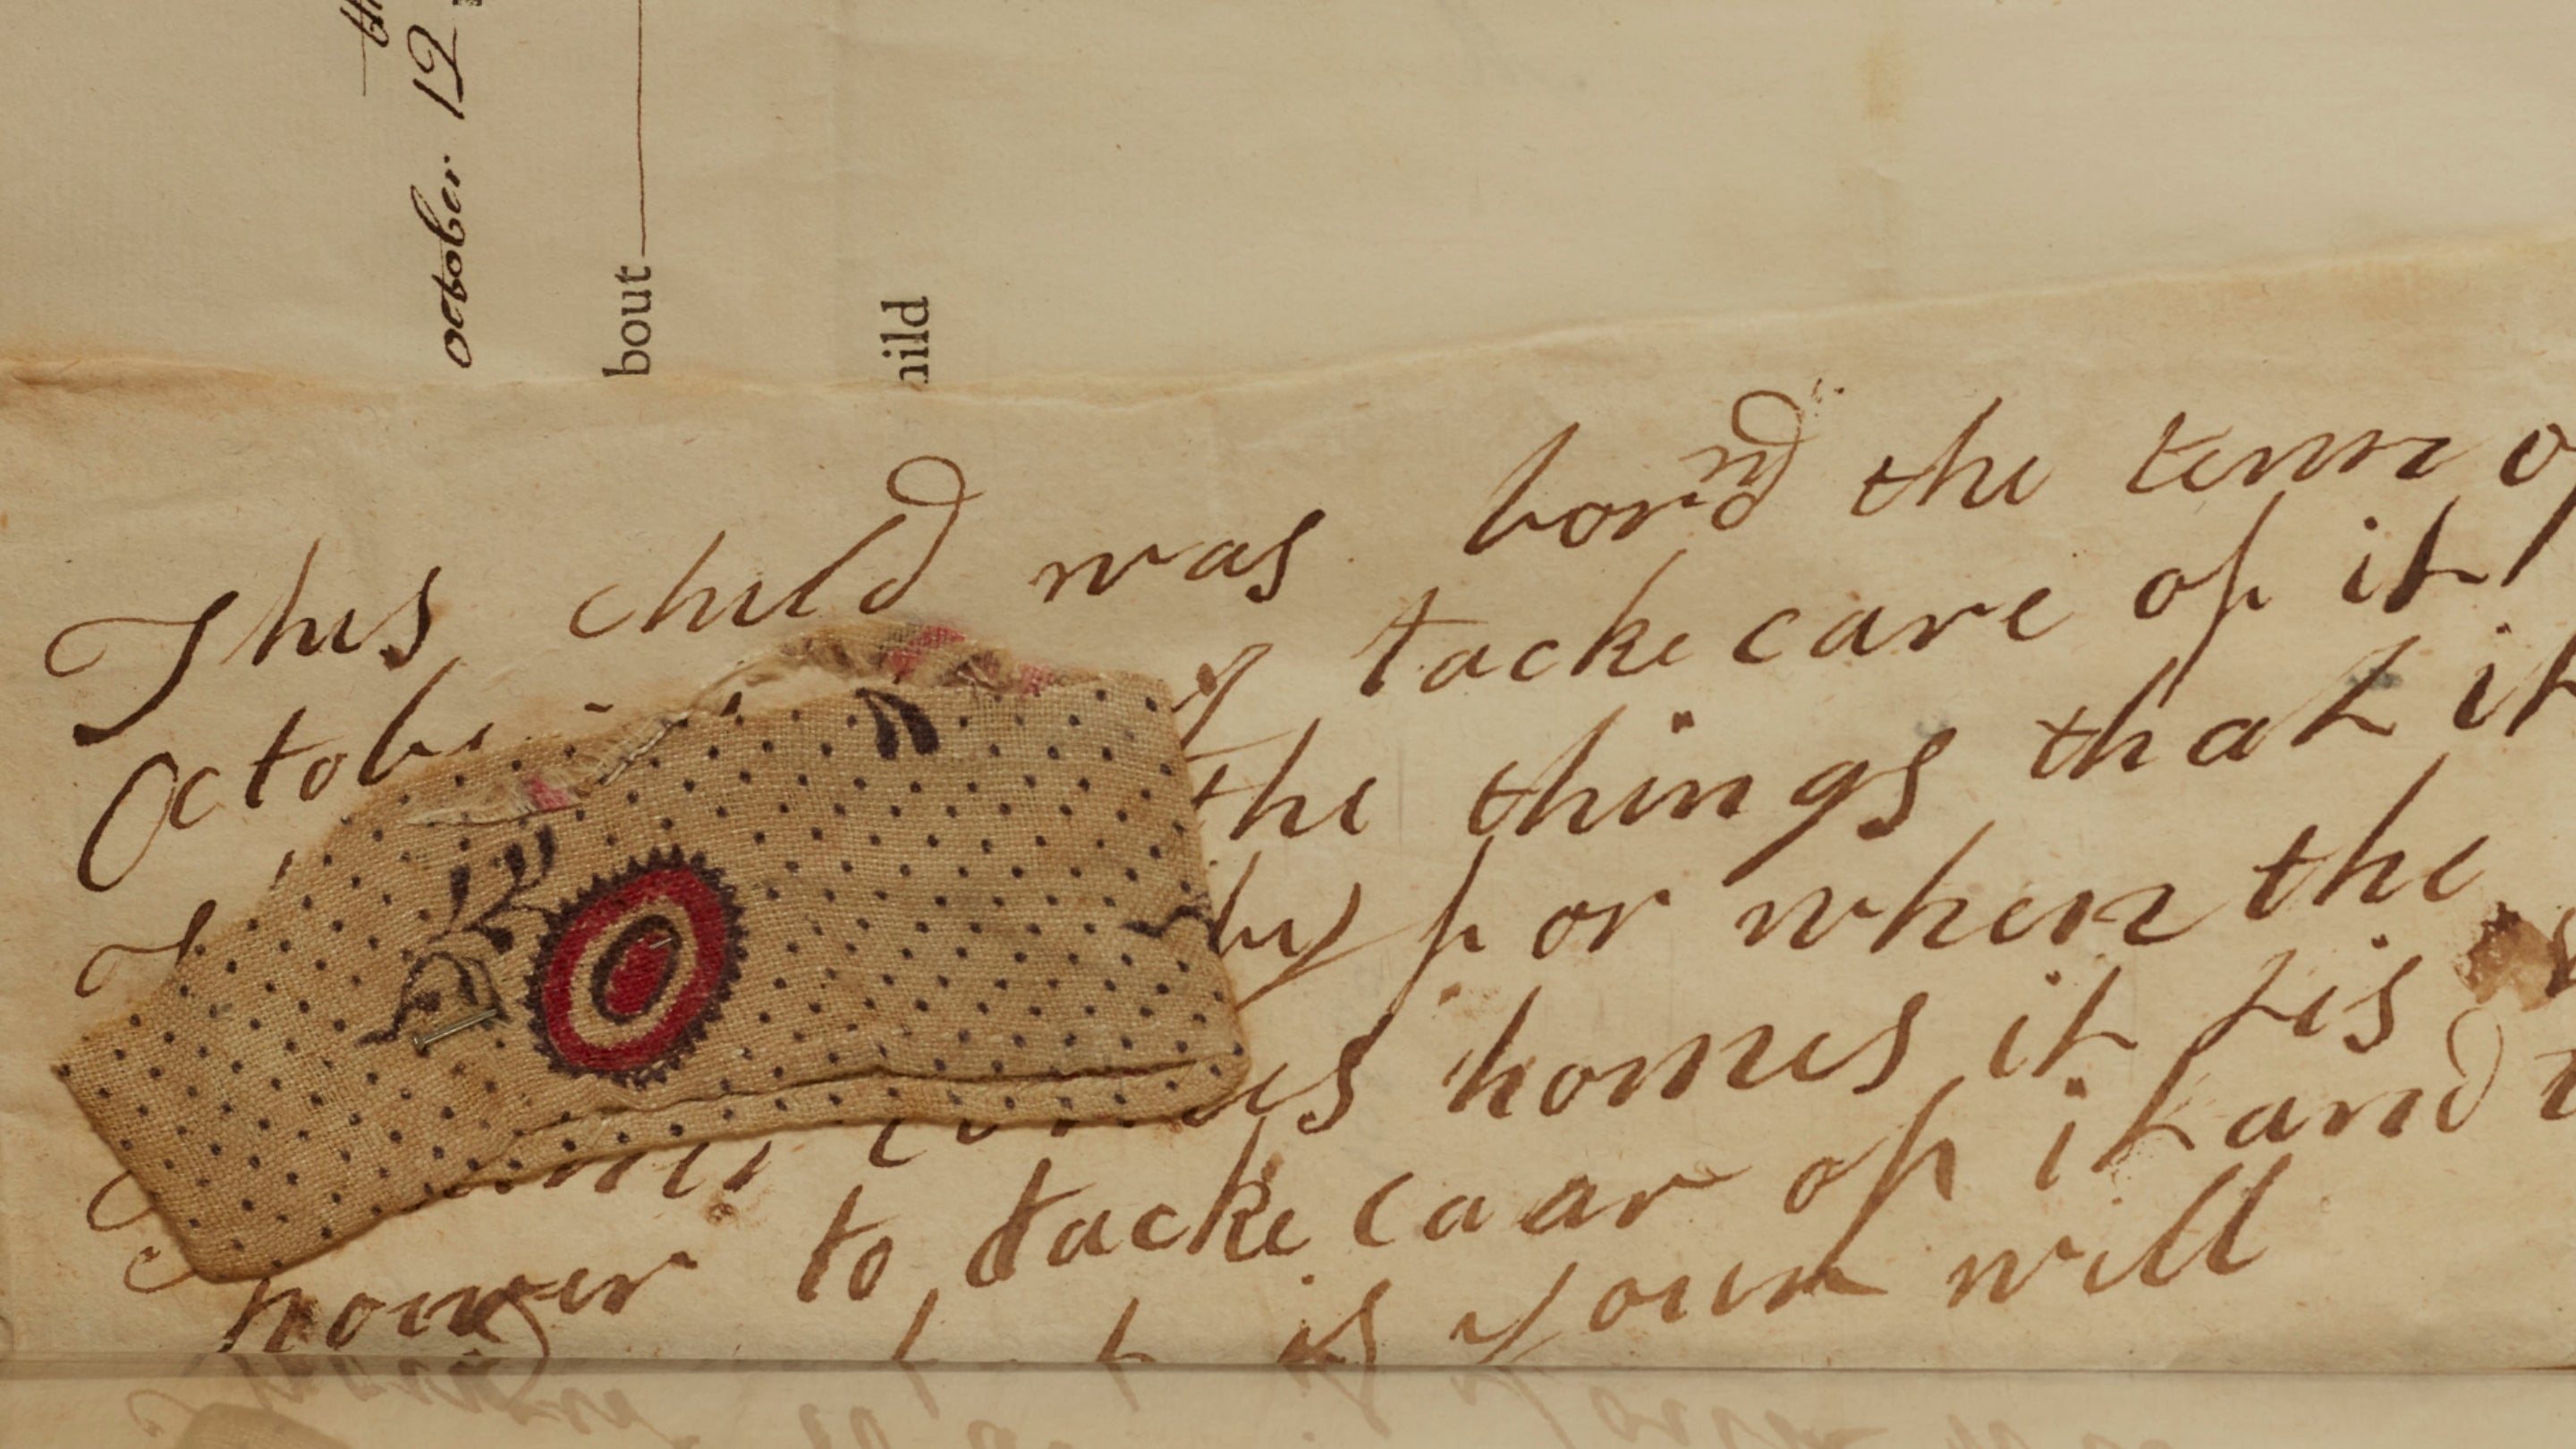 october 12
bout
hild
This child was bornd the tenn o
Octob tacke care of it
the things that it
by for when the
homes it tis
power to tacke caar of it and t
is your will